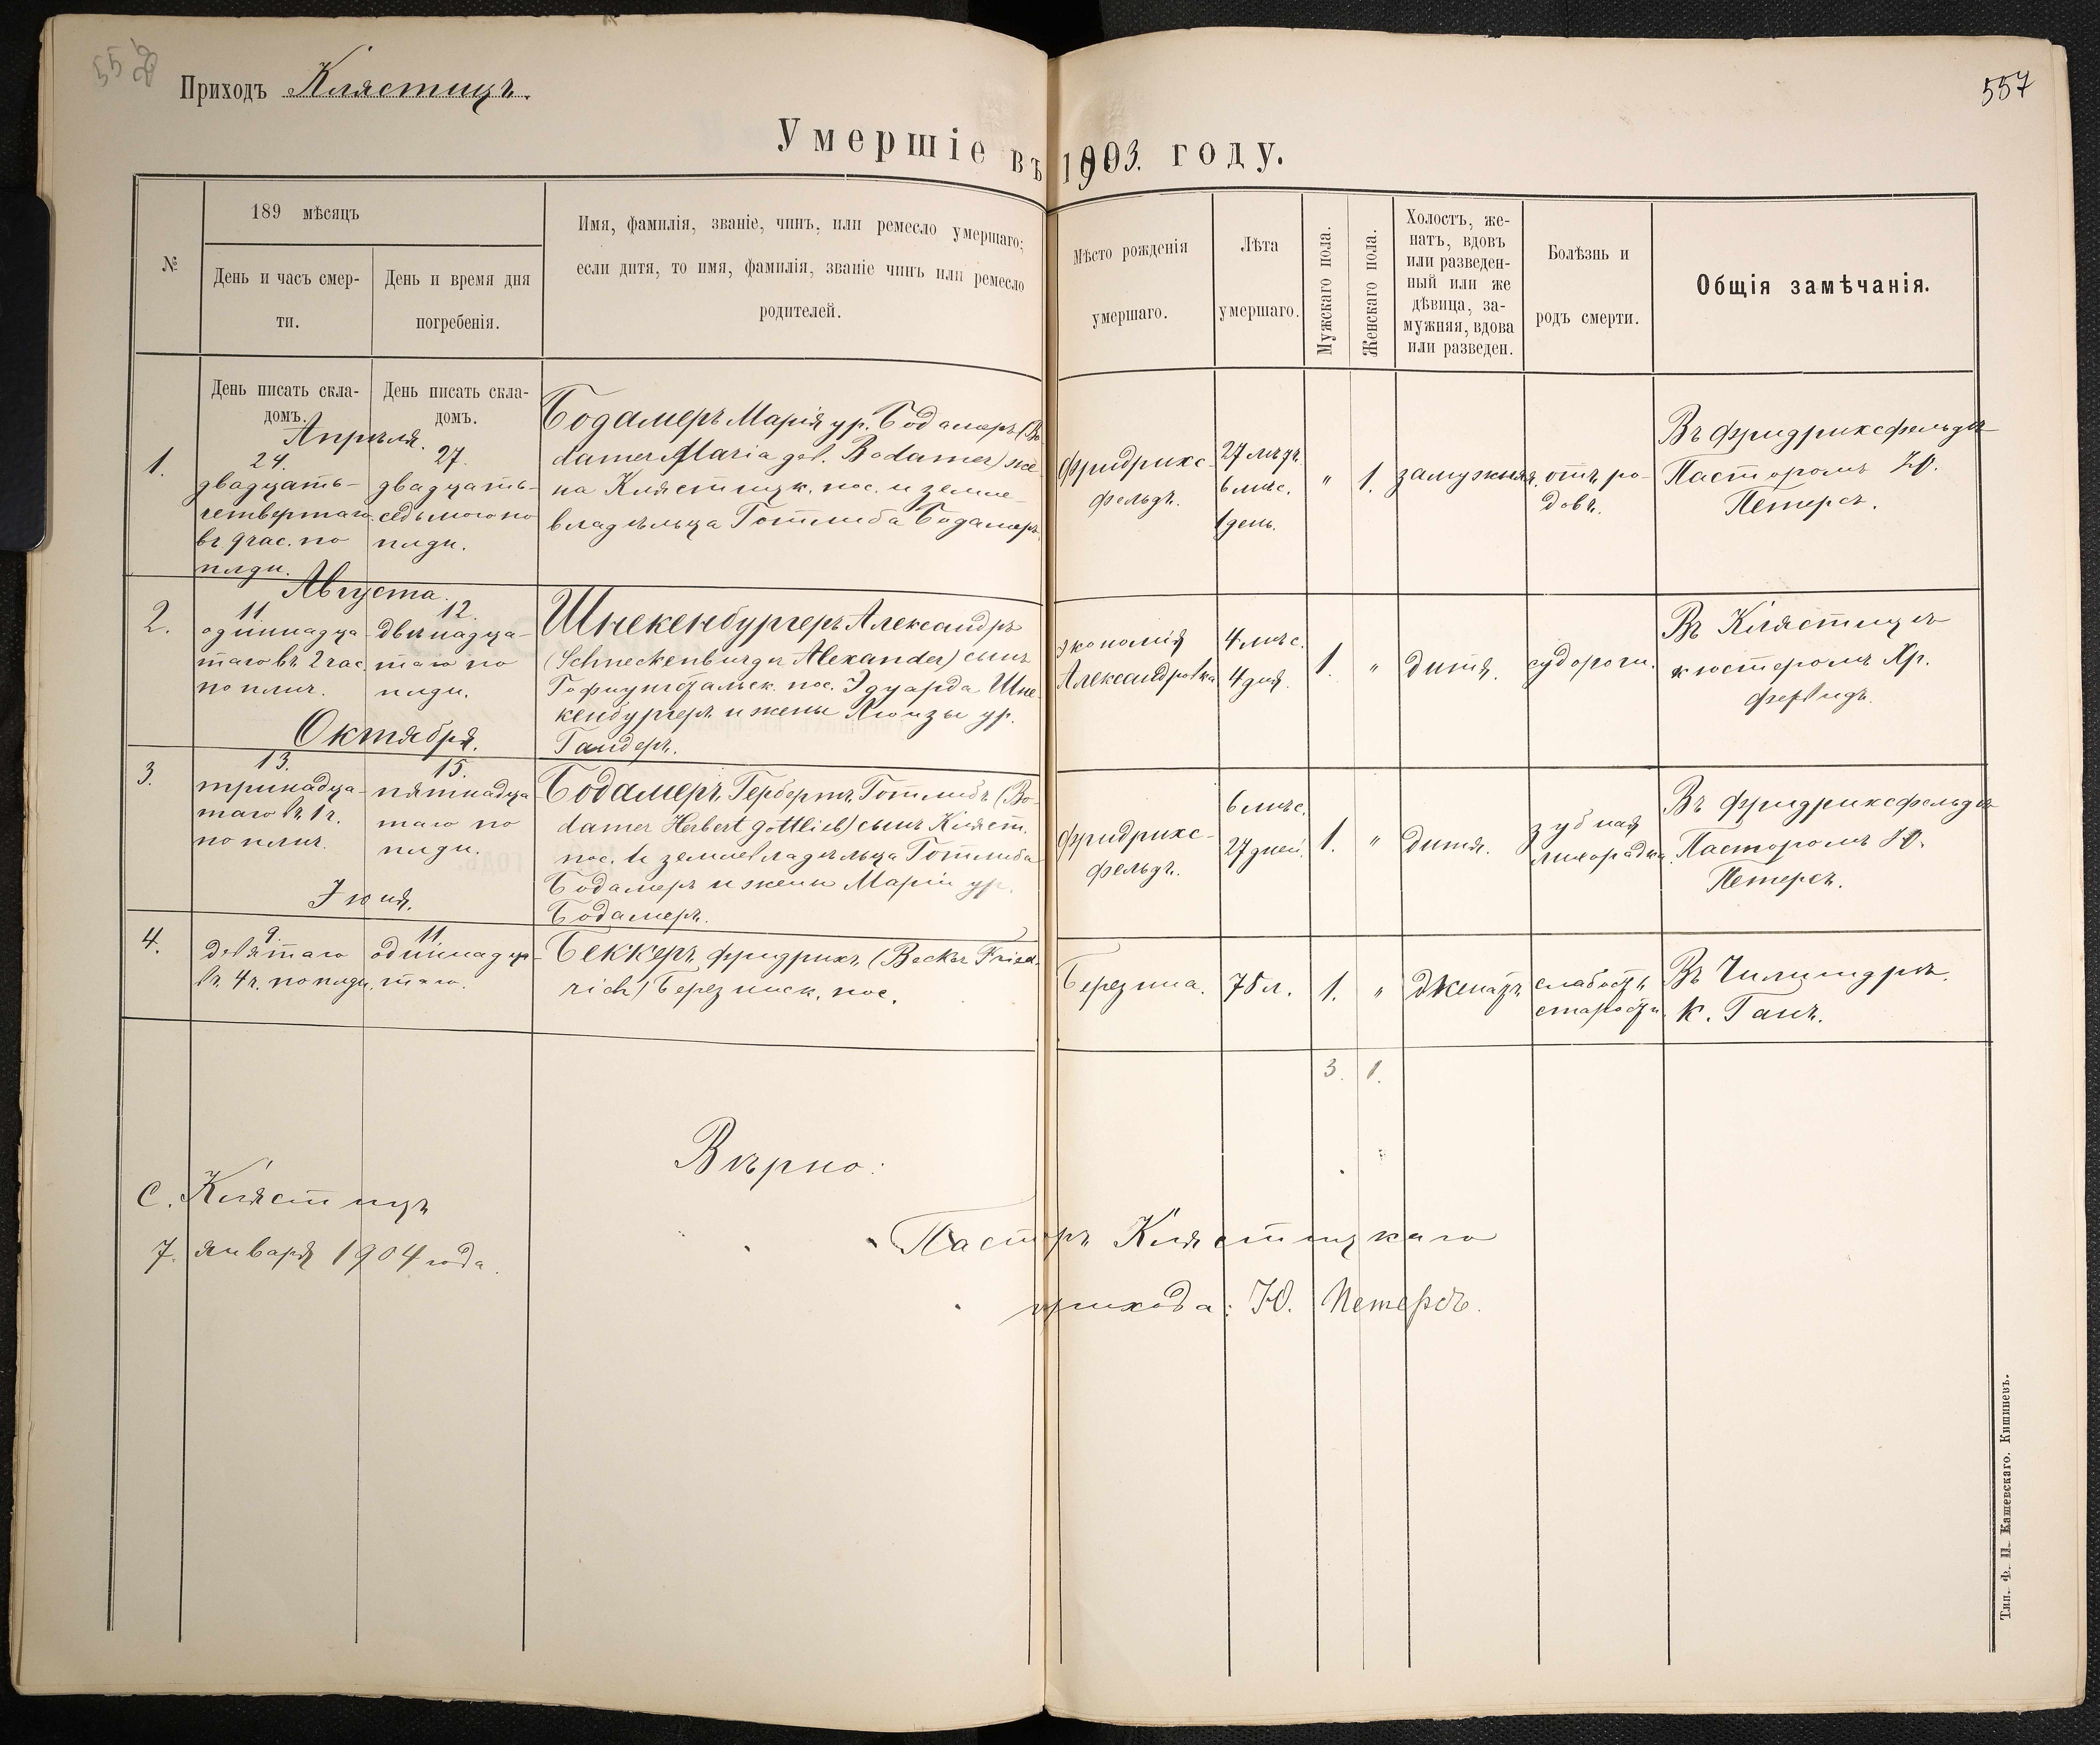 557
Приходъ Клястицъ.
Умершіе въ 1903. году.
№
189 мѣсяцъ
День и часъ смер-
ти.
День и время дня
погребенія.
Имя, фамилія, званіе, чинъ, или ремесло умершаго;
если дитя, то имя, фамилія, званіе чинъ или ремесло
родителей.
Мѣсто рожденія
умершаго.
Лѣта
умершаго.
Мужскаго пола.
Женскаго пола.
Холостъ, же-
натъ, вдовъ
или разведен-
ный или же
дѣвица, за-
мужняя, вдова
или разведен.
Болѣзнь и
родъ смерти.
Общія замѣчанія.
День писать скла-
домъ.
День писать скла-
домъ.
Апрѣля.
1.
24.
двадцать-
четвертаго
въ 9 час. по
плдн.
27.
двадцать-
седьмого по
плдн.
Бодамеръ Марія ур. Бодамеръ (Bo-
damer Maria geb. Bodamer) же-
на Клястицк. пос. и земле-
владѣльца Готлиба Бодамеръ.
Фридрихс-
фельдъ.
27 лѣтъ
6 мѣс.
1 день.
"
1.
замужняя.
отъ ро-
довъ.
Въ Фридрихсфельдѣ
Пасторомъ Ю.
Петерсъ.
Августа.
2.
11.
одиннадца-
таго въ 2 час.
по плнч.
12.
двѣнадца-
таго по
плдн.
Шнекенбургеръ Александръ
(Schneckenburger Alexander) сынъ
Гофнунгстальск. пос. Эдуарда Шне-
кенбургеръ и жены Луизы ур.
Гандеръ.
экономія
Александровка
4 мѣс.
4 дня.
1.
"
дитя.
судороги.
Въ Клястицѣ
кюстеромъ Хр.
Фервидъ.
Октября.
3.
13.
тринадца-
таго въ 1 ч.
по плнч.
15.
пятнадца-
таго по
плдн.
Бодамеръ, Гербертъ Готлибъ (Bo-
damer Herbert Gottlieb) сынъ Кляст.
пос. и землевладѣльца Готлиба
Бодамеръ и жены Маріи ур.
Бодамеръ.
Фридрихс-
фельдъ.
6 мѣс.
27 дней.
1.
"
дитя.
зубная
лихорадка.
Въ Фридрихсфельдѣ
Пасторомъ Ю.
Петерсъ.
Іюня.
4.
9.
девятаго
въ 4 ч. по плдн.
11.
одиннадца-
таго.
Беккеръ, Фридрихъ, (Becker Fried-
rich) Березинск. пос.
Березина.
78 л.
1.
"
женатъ
слабость
старости.
Въ Чилигидрѣ.
к. Ганъ.
3.
1.
Вѣрно:
С. Клястицъ
7. января 1904 года.
Пасторъ Клястицкаго
прихода: Ю. Петерсъ.
Тип. Ф. П. Кашевскаго. Кишиневъ.